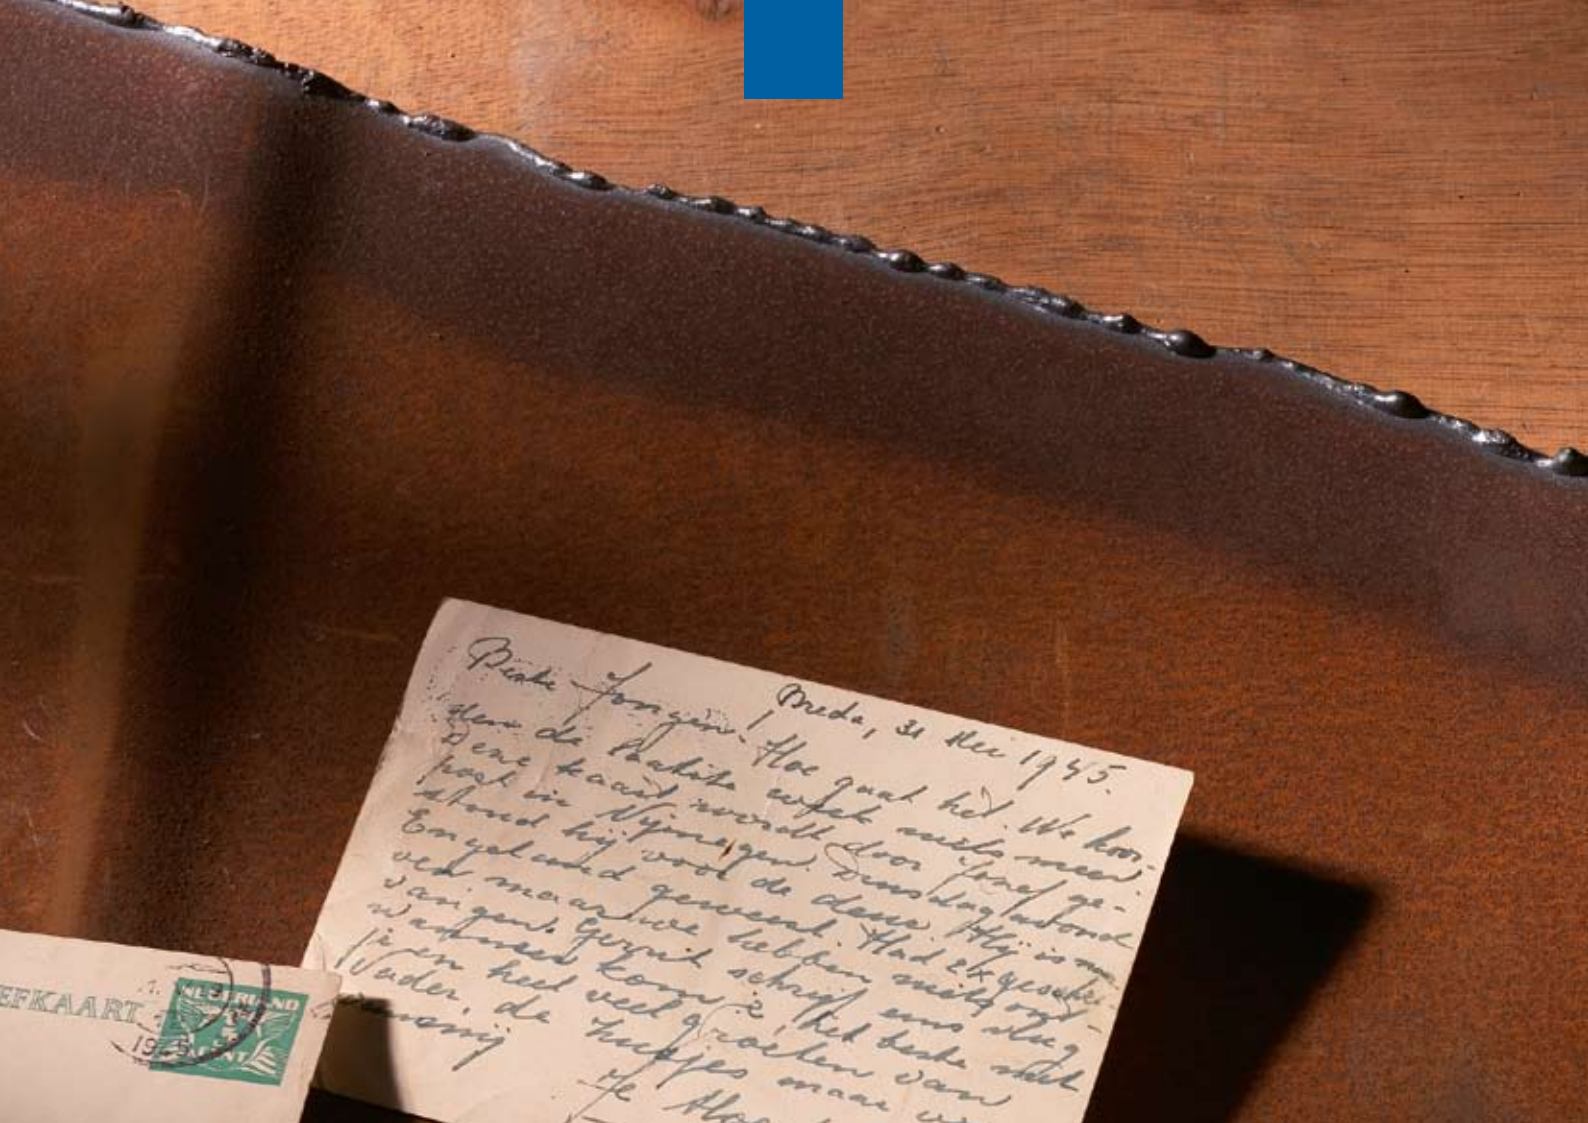 Breda, 31 Mei 1945.
Beste Jongen! Hoe gaat het. We hoor-
den de laatste week niets meer.
Deze kaart wordt door Jozef ge-
post in Nijmegen. Dinsdagavond
stond hij voor de deur. Hij is in
Engeland geweest. Had 2x geschre-
ven maar we hebben niets ont-
vangen. Gerrit schrijf eens vlug
wanneer kom je? Het beste met
je en heel veel groeten van
Vader, de zusjes maar
Je
EFKAART
NEDERLAND
CENT